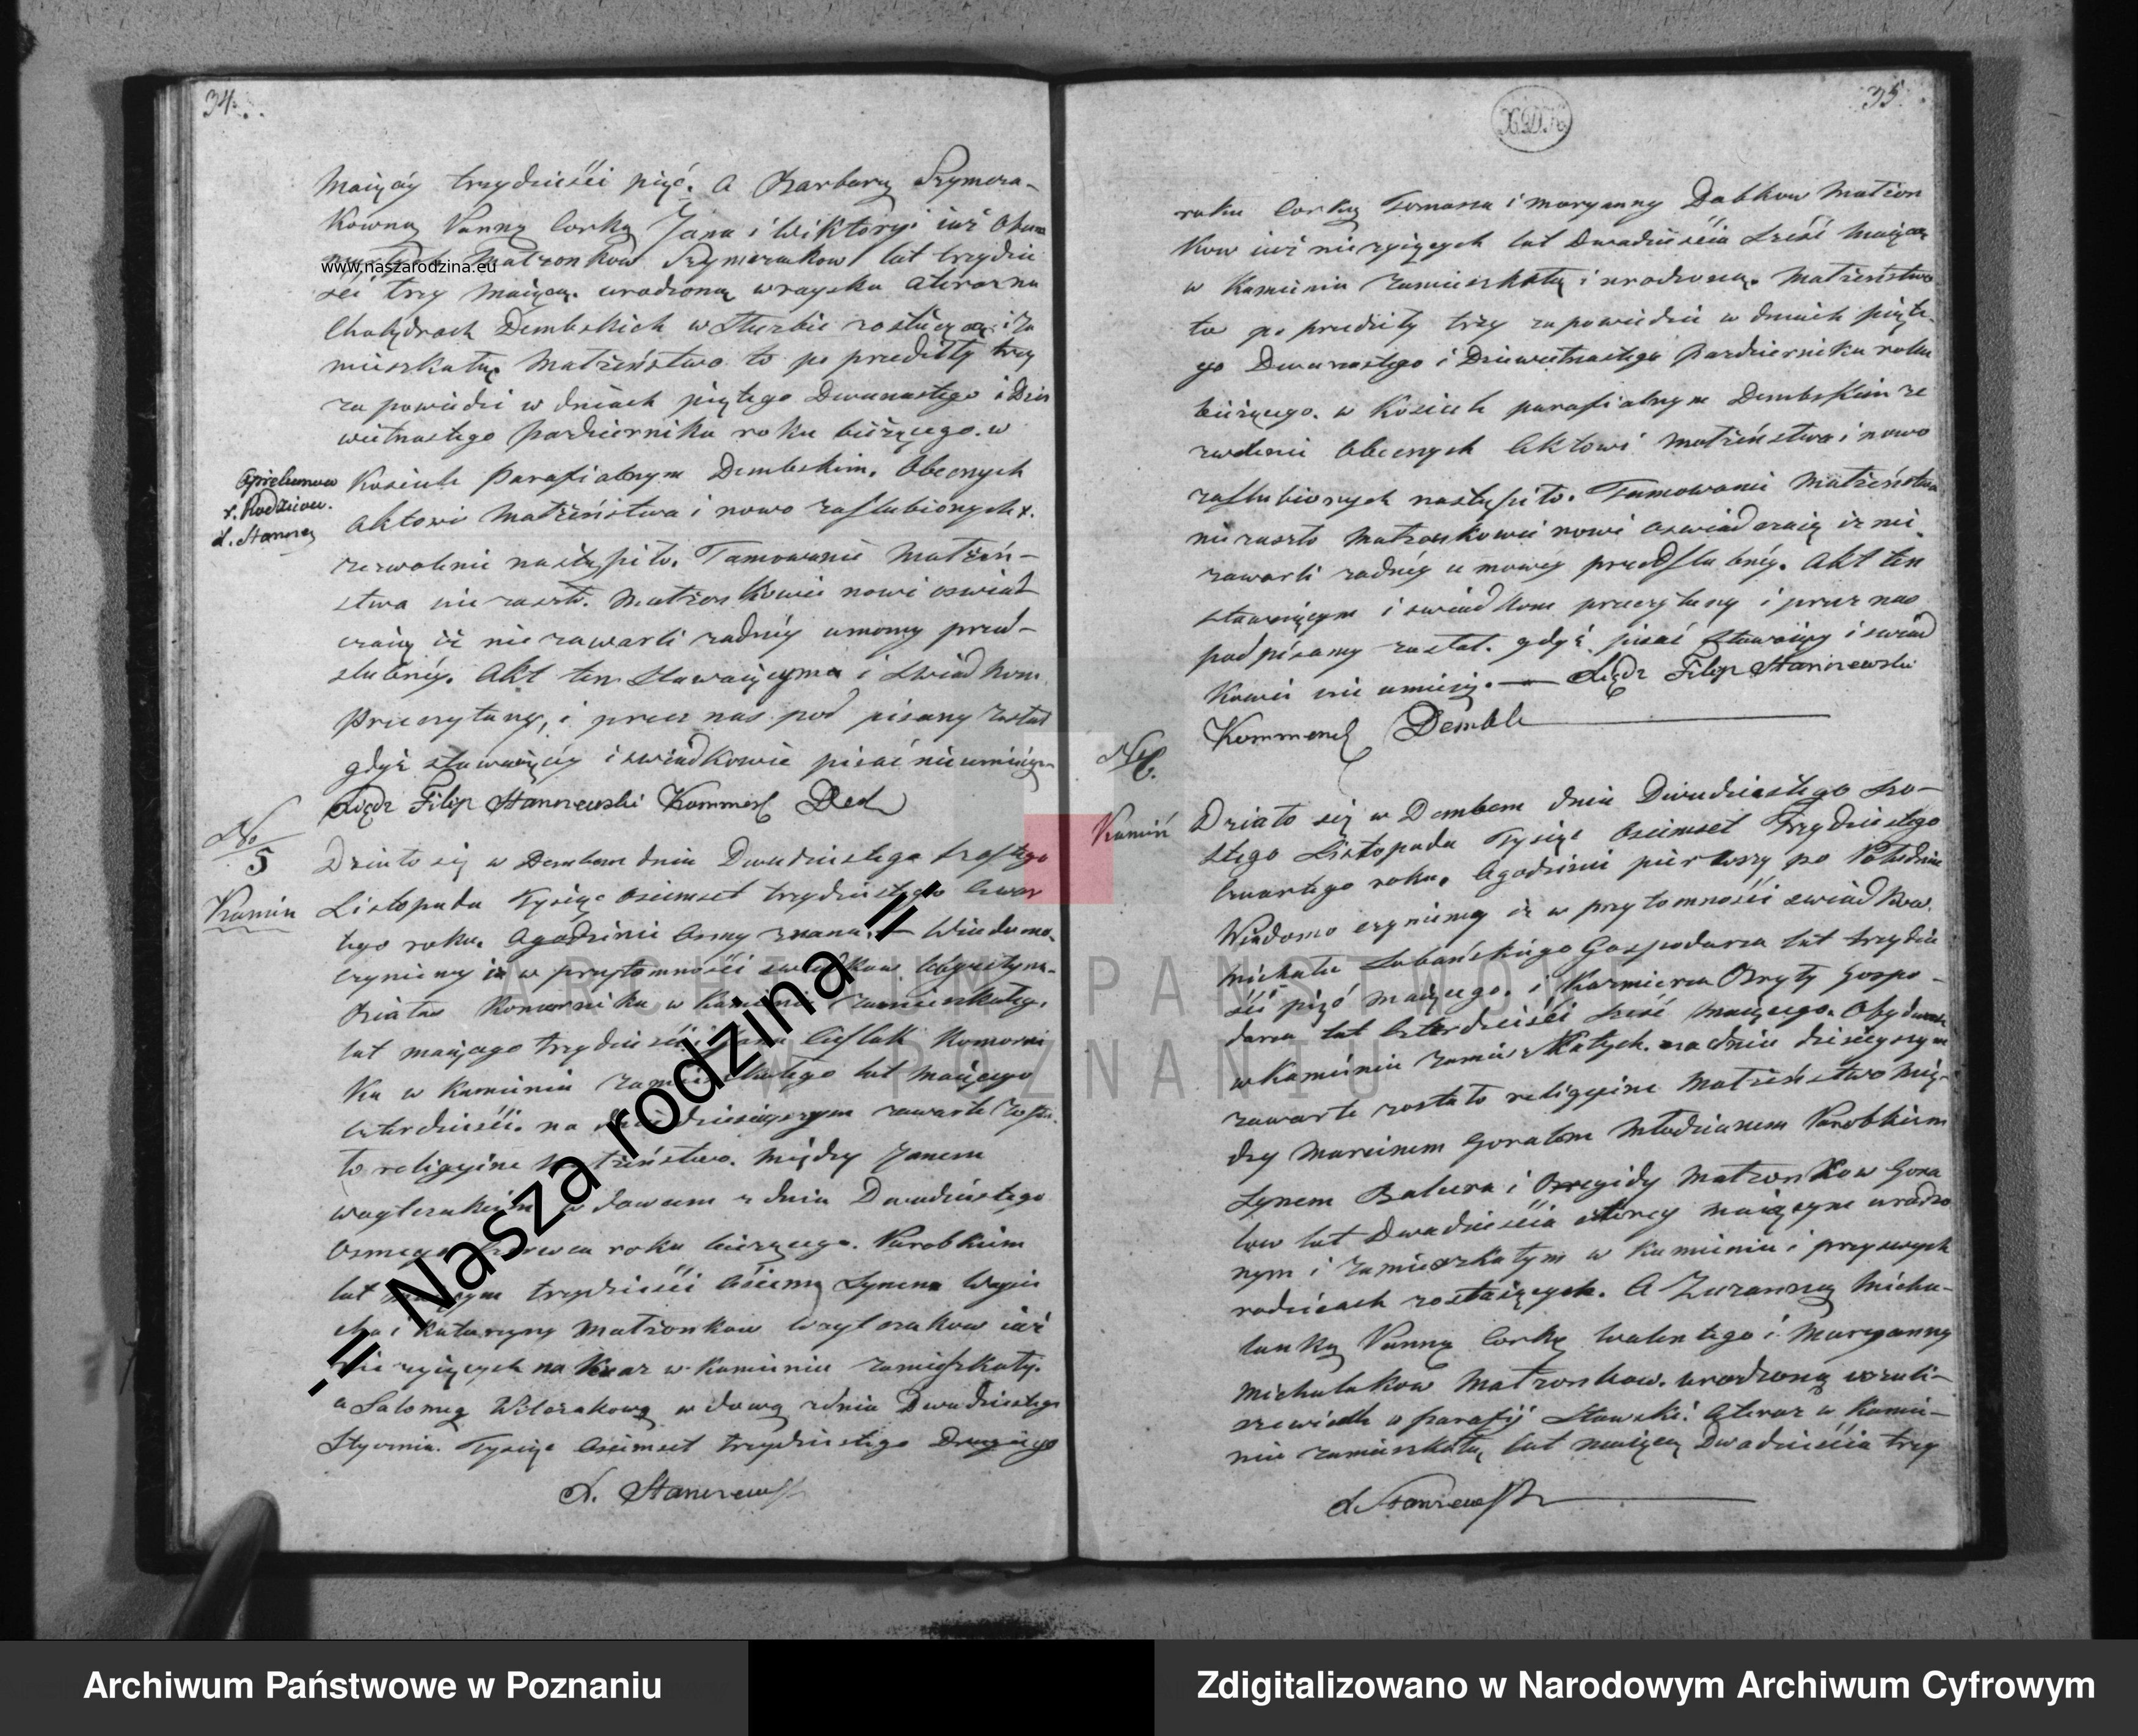 34.
maiący trzydzieści pięć. A Barbarą Szymcza-
kowną Panną Corką Jana i Wiktoryi iuż
Małzonkow Szymczakow lat trzydzie
www.naszarodzina.eu
ści trzy maiącą. urodzoną w a teraz na
Dembskich w służbie i za
mieszkałą. Małżeństwo to po przedziły trzy
zapowiedzi w dniach piątego Dwunastego i Dzie
więtnastego Pazdziernika roku bieżącego. w
Kościele Parafialnym Dembskim. Obecnych
Aktowi Małżeństwa i nowo zaslubionych x.
x. Rodzicow.
X. Stanisz
zezwolenie nastąpiło. Tamowanie Małżeń-
stwa nie zaszło. Małzonkowie nowi oswiad
czaią iż nie zawarli zadnéy umowy przed-
slubnéy. Akt ten Stawaiącym i Swiadkom
Przeczytany, i przez nas pod pisany został
gdyż stawaiący i swiadkowie pisać nieumieią.
Xiądz Filip Staniszewski Kommend
No
5
Kamin
Działo się w Dembem dnia Dwudziestego szostego
Listopada Tysiąc osiemset trzydziestego Czwar
tego roku. o godzinie osmy zrana. — Wiadomo
czyniemy iż w przytomności swiadkow
Komornika w Kamieniu zamieszkałego.
lat maiącego trzydzieści i Jana Cieslak Komorni
ka w Kamieniu zamieszkałego lat maiącego
czterdzieści. na dniu dzisieyszym zawarte zosta
ło religiyine Małżeństwo. między Janem
wdowcem z dnia Dwudziestego
Osmego Czerwca roku bieżącego. Parobkiem
lat maiącym trzydzieści osiem Synem Woycie
cha i Katarzyny Małzonkow iuż
nie zyiących na w Kamieniu zamieszkały.
a Salomeą Witczakową wdową z dnia Dwudziestego
Stycznia. Tysiąc osiemset trzydziestego Drugiego
X. Staniszewski
35.
roku Corką Tomasza i Maryanny Dabkow Małzon
kow iuż nie zyiących lat Dwadzieścia sześć maiąca
w Kamieniu zamieszkałą i urodzoną. Małżeństwo
to po przedziły trzy zapowiedzi w dniach piąte-
go Dwunastego i Dziewietnastego Pazdziernika roku
bieżącego. w Kosciele parafialnym Dembskim ze
zwolenie Obecnych Aktowi małżeństwa i nowo
zaslubionych nastąpiło. Tamowanie Małżeństwa
nie zaszło Małzonkowie nowi oswiadczaią iż nie
zawarli zadnéy umowy przedslubnéy. Akt ten
stawaiącym i swiadkom przeczytany i przez nas
podpisany został. gdyż pisać stawaiący i swiad
kowie nie umieią. — Xiądz Filip Staniszewski
Kommend Dembe
No 6.
Kamiń
Działo się w Dembem dnia Dwudziestego szo-
stego Listopada Tysiąc osiemset Trzydziestego
Czwartego roku. o godzinie pierwszy po Południu
Wiadomo czyniemy iż w przytomności swiadkow.
Michała Lubańskiego Gospodarza lat trzydzie
ści pięć maiącego. i Kazmierza Bryły Gospo-
darza lat czterdzieści sześć maiącego. Obydwoch
w Kamieniu zamieszkałych. na dniu dzisieyszym
zawarte zostało religiyine Małżeństwo mię-
dzy Marcinem Goralem Młodzianem Parobkiem
Synem Baltera i Małzonkow Gora
low lat Dwadzieścia cztery maiącym urodzo
nym i zamieszkałym w Kamieniu i przy swych
rodzicach zostaiących. A Zuzanną Micha-
lanką Panną Corką Walentego i Maryanny
Michalakow Małzonkow. urodzoną w
w parafij Stawski. A teraz w Kamie-
niu zamieszkałą lat maiącą Dwadzieścia trzy
X. Staniszewski
ARCHIWUM PAŃSTWOWE
W POZNANIU
-= Nasza rodzina =-
Archiwum Państwowe w Poznaniu
Zdigitalizowano w Narodowym Archiwum Cyfrowym